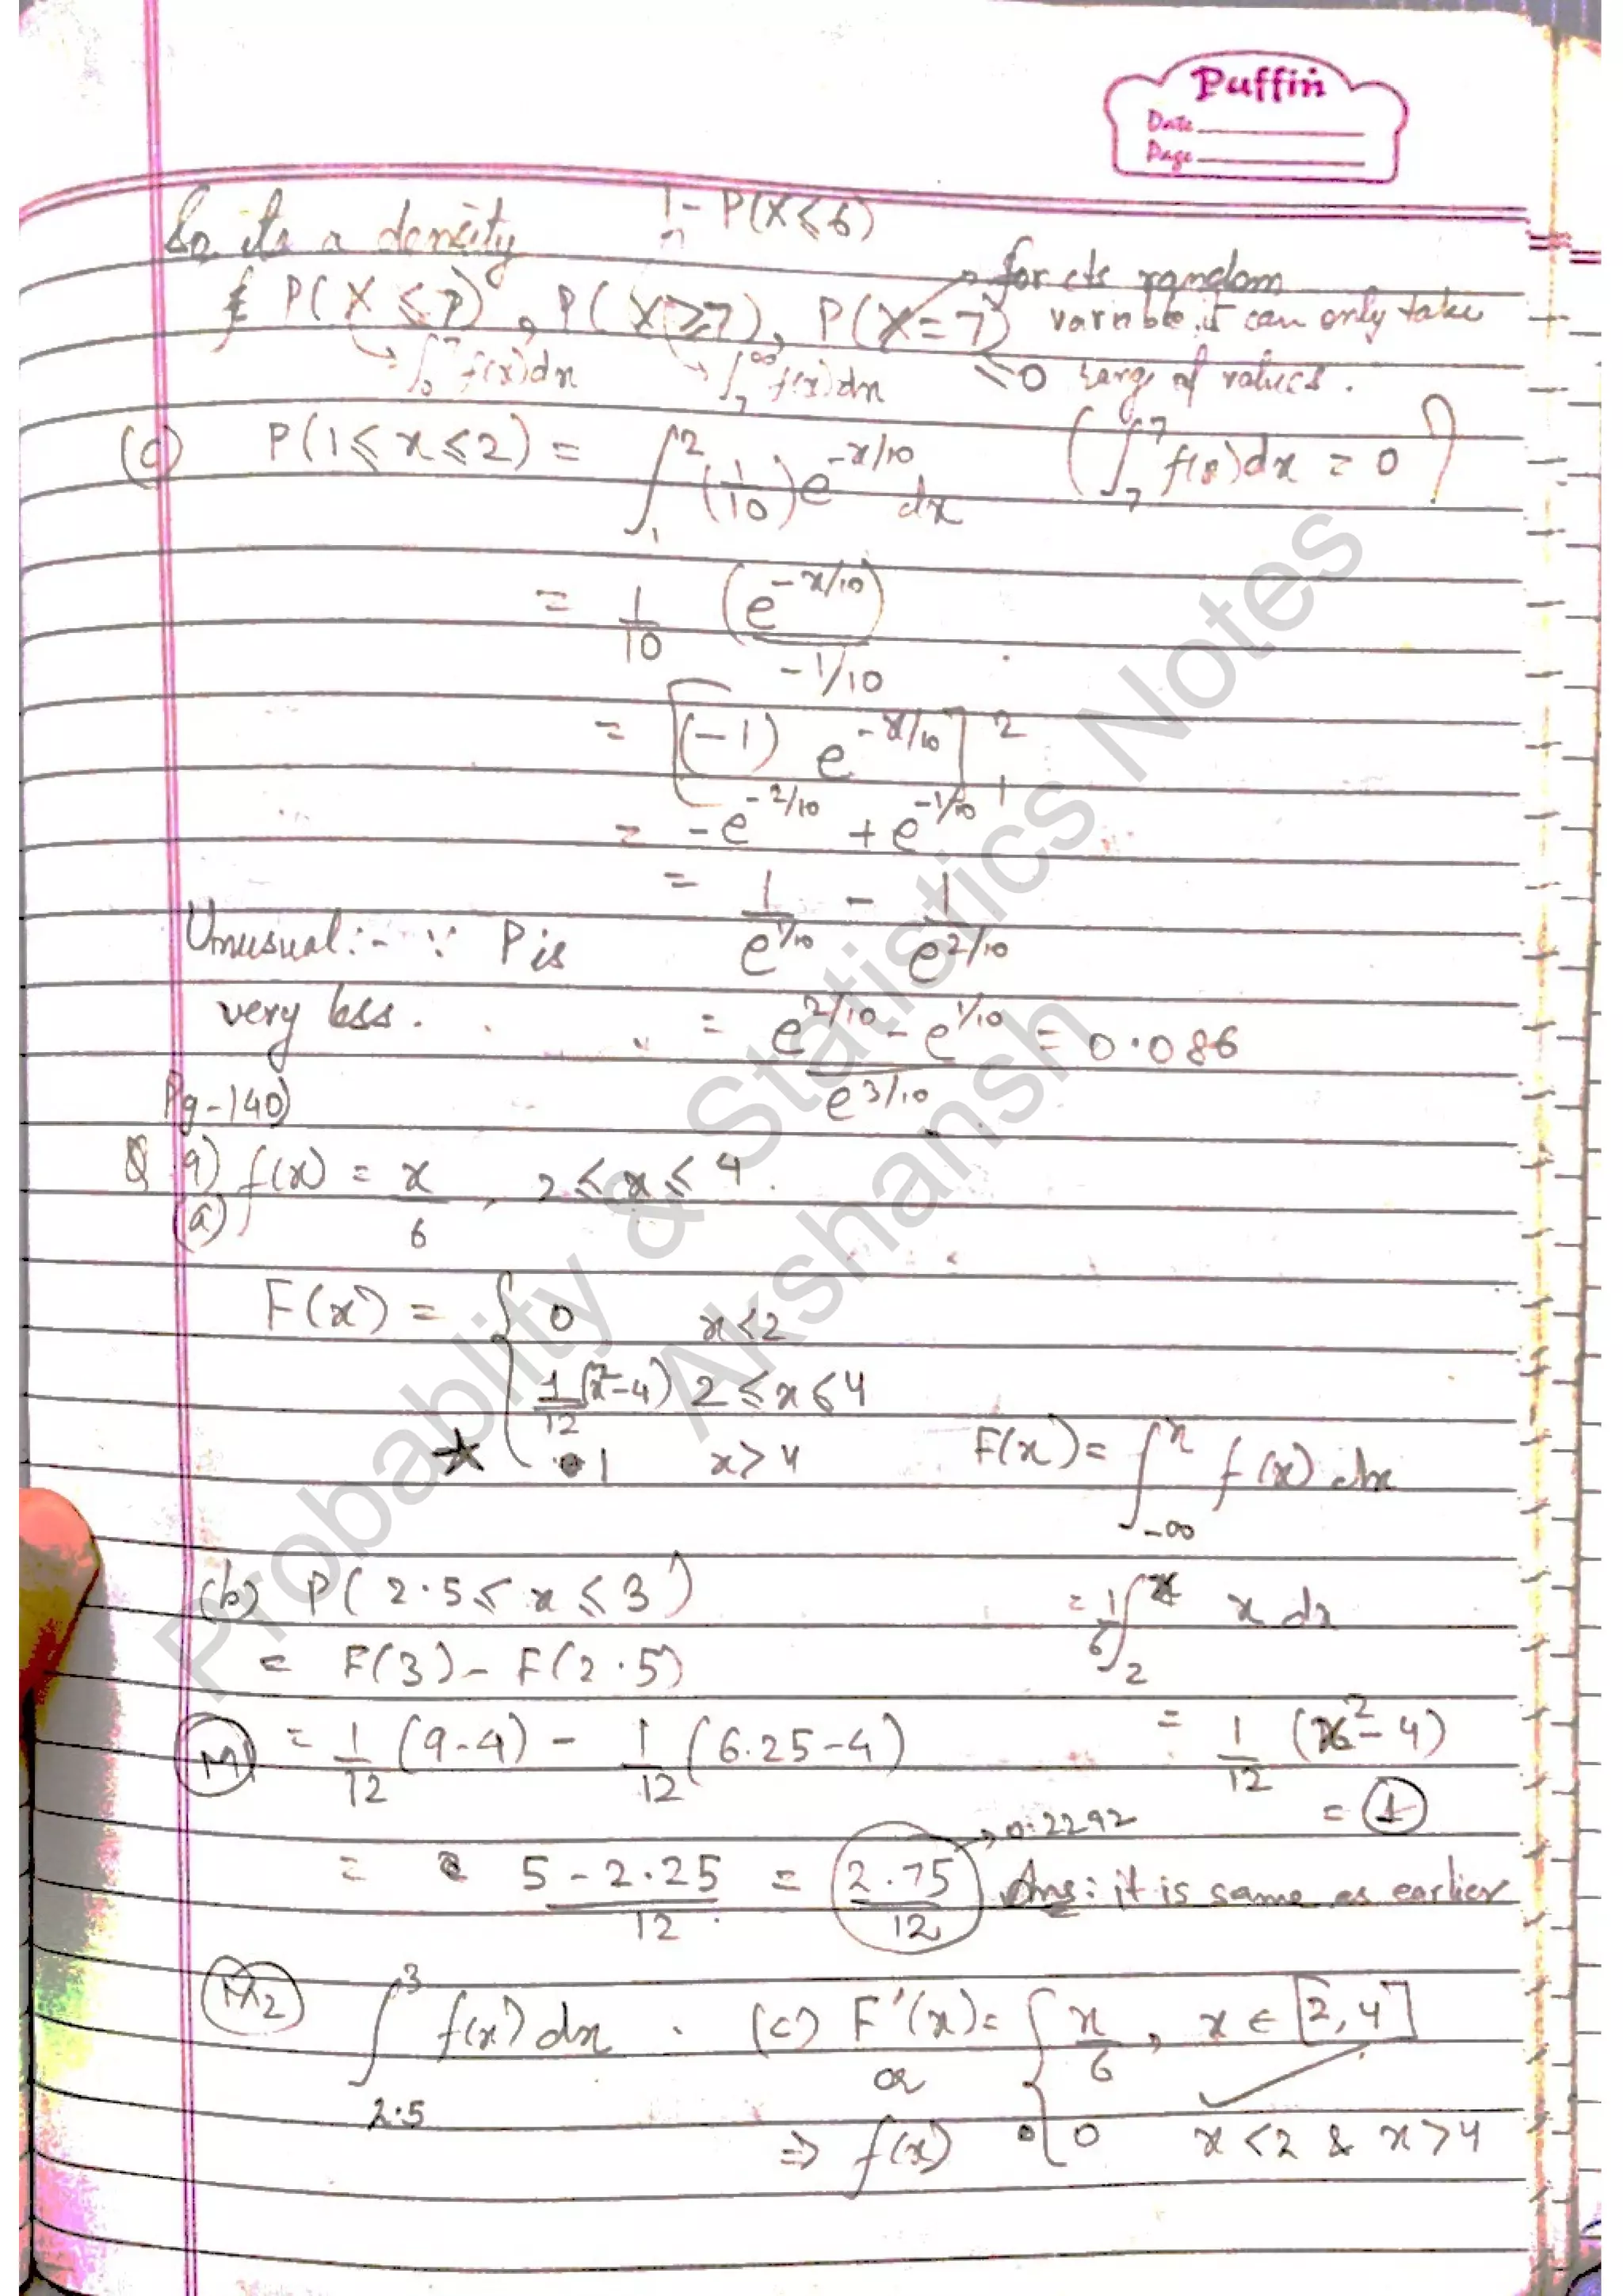 Puffin
Date
Page
So its a density 1 - P(X ≤ 6)
P(X ≤ 7), P(X ≥ 7), P(X = 7) → for cts random
variable it can only take
→ ∫₀⁷ f(x) dx → ∫₇^∞ f(x) dx ↳ 0 range of values.
(c) P(1 ≤ x ≤ 2) = ∫₁² (1/10) e^(-x/10) dx (∫₇⁷ f(x) dx = 0)
= 1/10 (e^(-x/10)) / (-1/10)
= [(-1) e^(-x/10)]₁²
= -e^(-2/10) + e^(-1/10)
= 1/e^(1/10) - 1/e^(2/10)
Unusual :- ∵ P is
very less. = (e^(2/10) - e^(1/10)) / e^(3/10) = 0.086
Pg-140)
Q 9) f(x) = x/6, 2 ≤ x ≤ 4.
(a)
F(x) = { 0 x<2
1/12 (x²-4) 2 ≤ x ≤ 4
★ 1 x>4
F(x) = ∫_{-∞}^x f(x) dx
(b) P(2.5 ≤ x ≤ 3) = 1/6 ∫₂^x x dx
= F(3) - F(2.5)
M1 = 1/12 (9-4) - 1/12 (6.25-4) = 1/12 (x²-4)
= 1
= (5 - 2.25)/12 = 2.75/12 → 0.2292 Ans: it is same as earlier
M2 ∫_{2.5}^3 f(x) dx . (c) F'(x) = { x/6, x ∈ [2,4]
or
⇒ f(x) 0 x<2 & x>4
Probablity & Statistics Notes
Akshansh